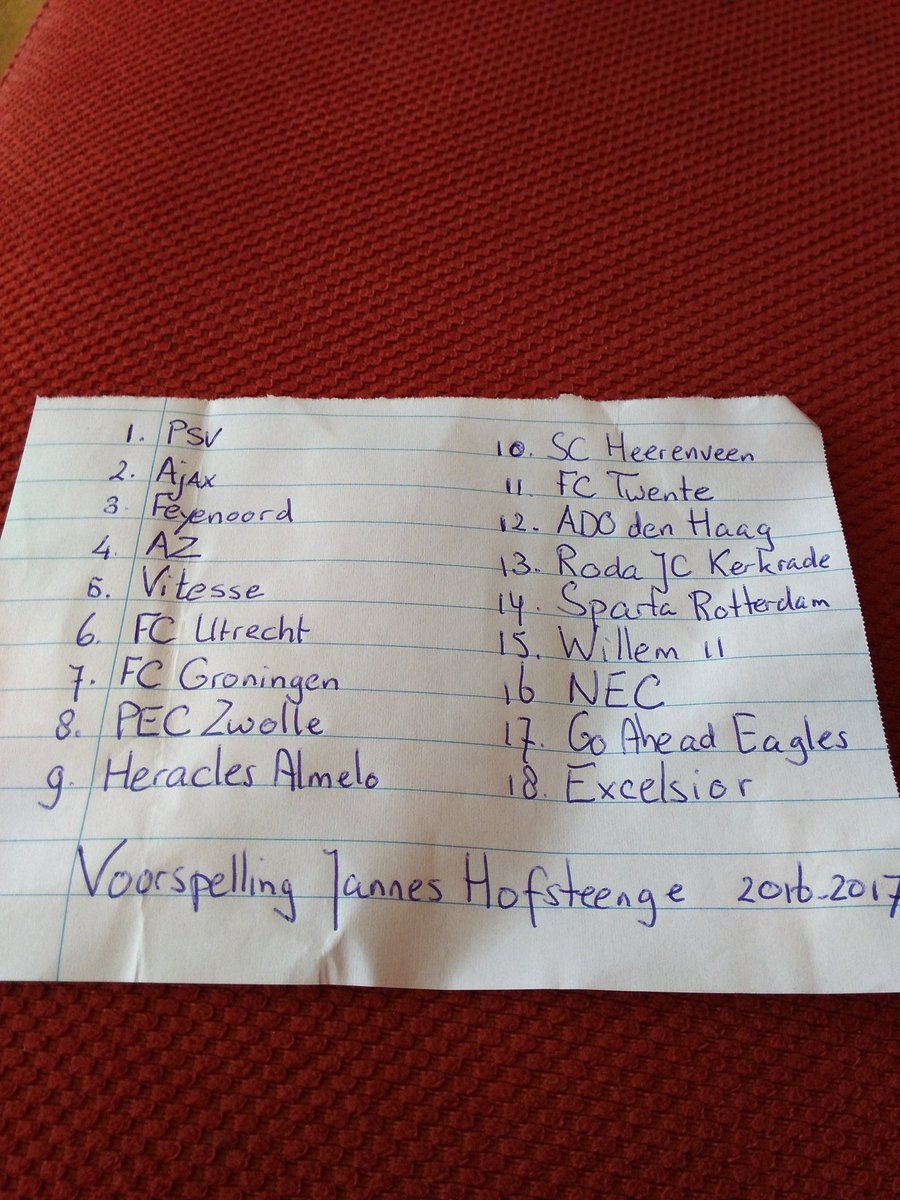 1. PSV
2. Ajax
3. Feyenoord
4. AZ
5. Vitesse
6. FC Utrecht
7. FC Groningen
8. PEC Zwolle
9. Heracles Almelo
10. SC Heerenveen
11. FC Twente
12. ADO den Haag
13. Roda JC Kerkrade
14. Sparta Rotterdam
15. Willem II
16 NEC
17. Go Ahead Eagles
18. Excelsior
Voorspelling Jannes Hofsteenge 2016-2017